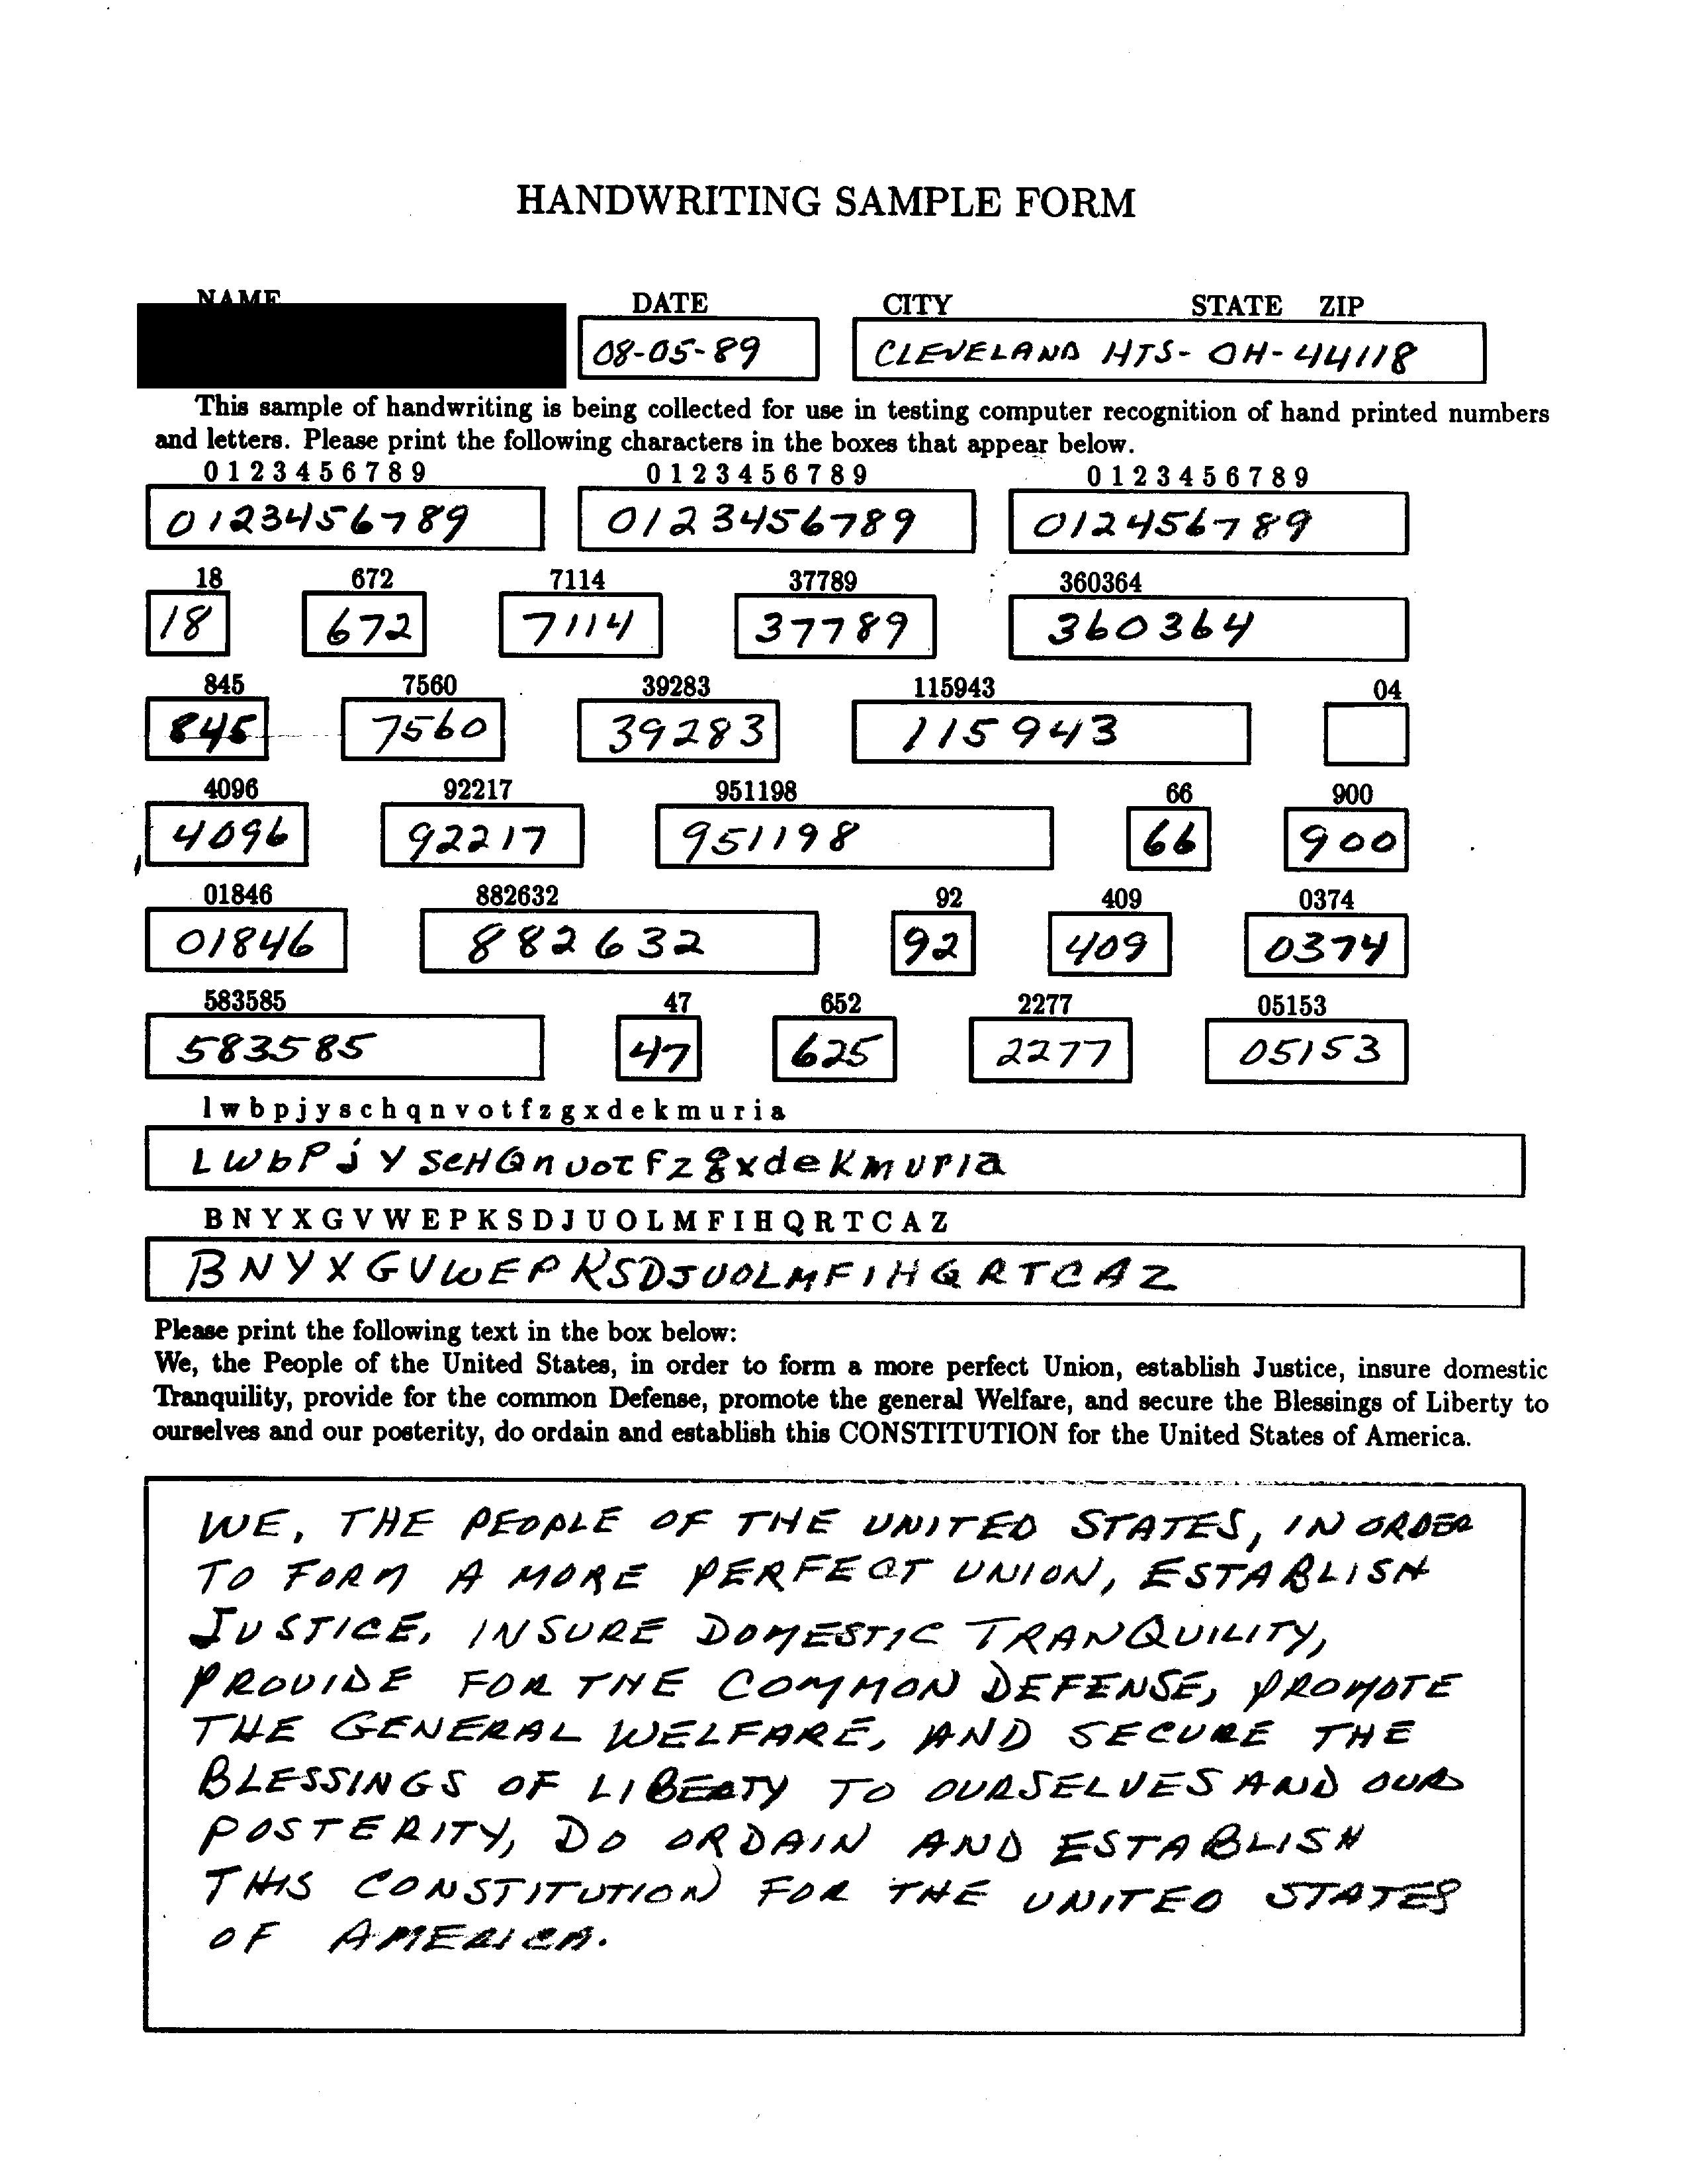 HANDWRITING SAMPLE FORM
NAME DATE CITY STATE ZIP
08-05-89 CLEVELAND HTS- OH-44118
This sample of handwriting is being collected for use in testing computer recognition of hand printed numbers
and letters. Please print the following characters in the boxes that appear below.
0 1 2 3 4 5 6 7 8 9 0 1 2 3 4 5 6 7 8 9 0 1 2 3 4 5 6 7 8 9
0123456789 0123456789 012456789
18 672 7114 37789 360364
18 672 7114 37789 360364
845 7560 39283 115943 04
845 7560 39283 115943
4096 92217 951198 66 900
4096 92217 951198 66 900
01846 882632 92 409 0374
01846 882632 92 409 0374
583585 47 652 2277 05153
583585 47 625 2277 05153
l w b p j y s c h q n v o t f z g x d e k m u r i a
LWbPjYScHQnvotFzgxdeKmurIa
B N Y X G V W E P K S D J U O L M F I H Q R T C A Z
BNYXGVWEPKSDJUOLMFIHQRTCAZ
Please print the following text in the box below:
We, the People of the United States, in order to form a more perfect Union, establish Justice, insure domestic
Tranquility, provide for the common Defense, promote the general Welfare, and secure the Blessings of Liberty to
ourselves and our posterity, do ordain and establish this CONSTITUTION for the United States of America.
WE, THE PEOPLE OF THE UNITED STATES, IN ORDER
TO FORM A MORE PERFECT UNION, ESTABLISH
JUSTICE, INSURE DOMESTIC TRANQUILITY,
PROVIDE FOR THE COMMON DEFENSE, PROMOTE
THE GENERAL WELFARE, AND SECURE THE
BLESSINGS OF LIBERTY TO OURSELVES AND OUR
POSTERITY, DO ORDAIN AND ESTABLISH
THIS CONSTITUTION FOR THE UNITED STATES
OF AMERICA.